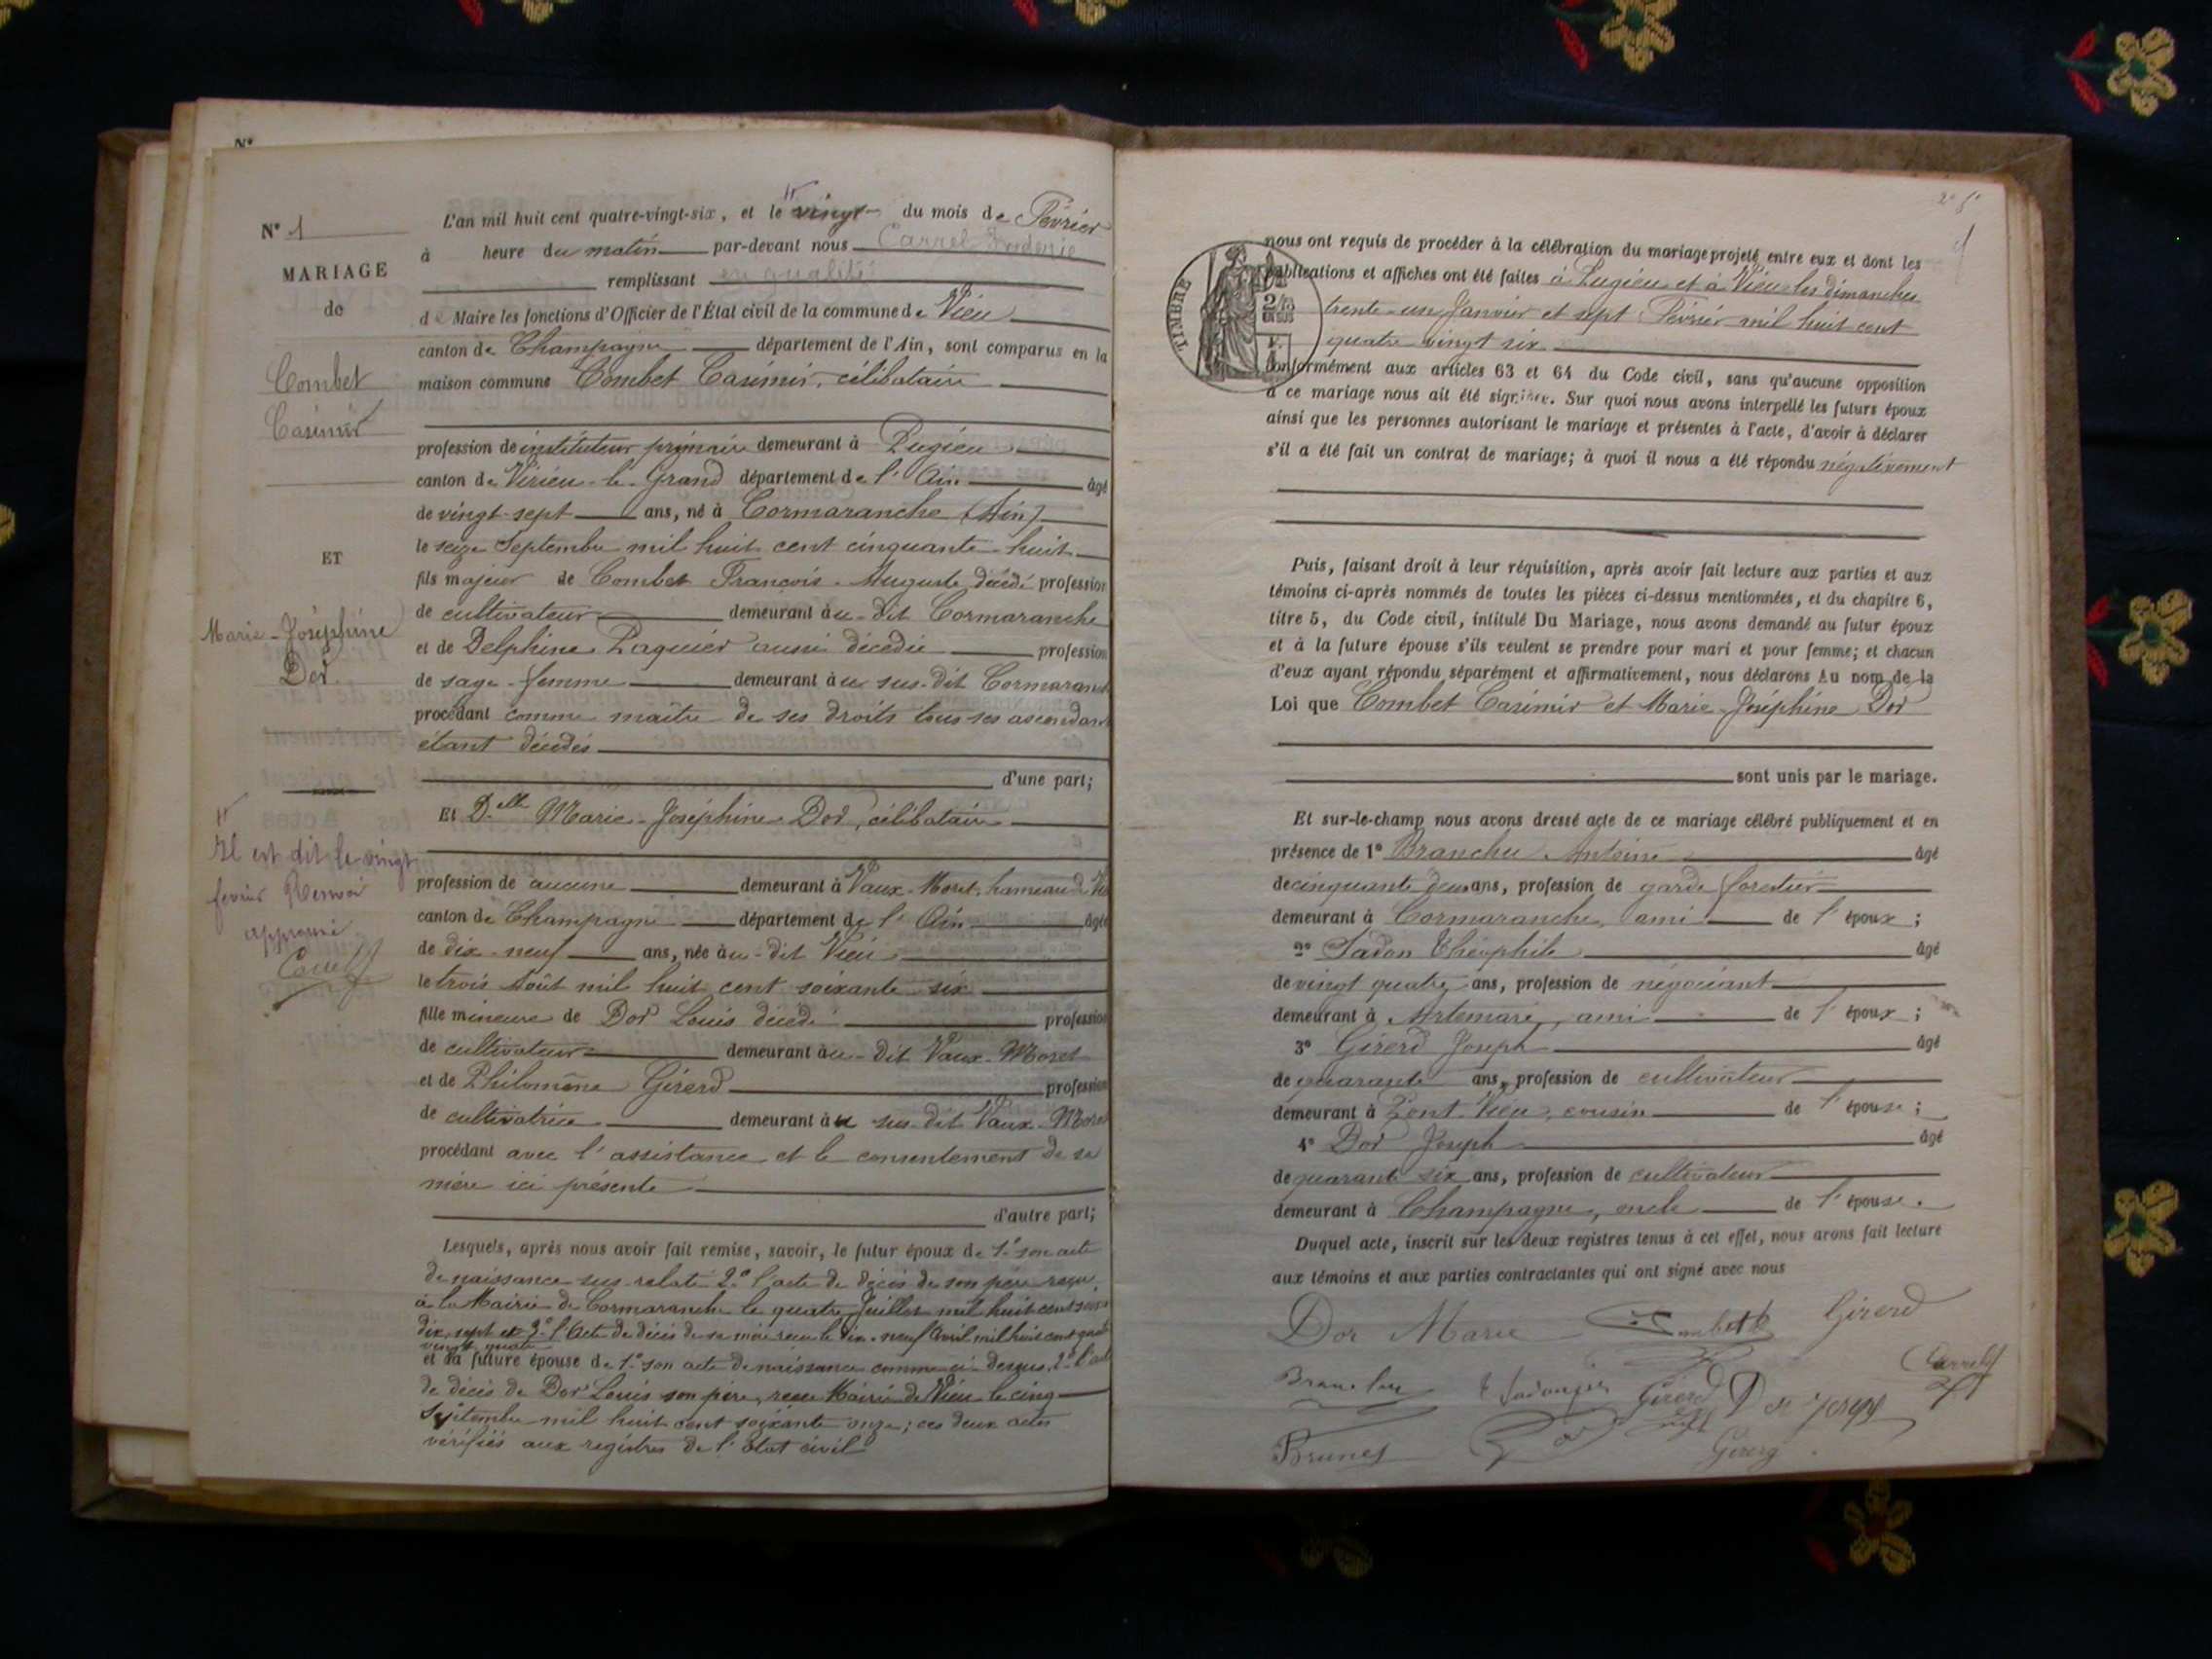 N°
N° 1
MARIAGE
de
Combet
Casimir
ET
Marie-Joséphine
Dor
Il est dit le vingt
fevrier Renvoi
approuvé
L'an mil huit cent quatre-vingt-six, et le vingt du mois de Février
à heure du matin par-devant nous Carrel Frédéric
remplissant en qualité
de Maire les fonctions d'Officier de l'État civil de la commune de Vieu
canton de Champagne département de l'Ain, sont comparus en la
maison commune Combet Casimir, célibataire
profession de instituteur primaire demeurant à Pugieu
canton de Virieu-le-Grand département de l'Ain âgé
de vingt-sept ans, né à Cormaranche (Ain)
le seize Septembre mil huit cent cinquante-huit
fils majeur de Combet François-Auguste décédé profession
de cultivateur demeurant au-dit Cormaranche
et de Delphine Paquier aussi décédée profession
de sage-femme demeurant au sus-dit Cormaranch
procédant comme maître de ses droits tous ses ascendants
étant décédés
d'une part;
Et Delle Marie-Joséphine Dor, célibataire
profession de aucune demeurant à Vaux-Moret, hameau de Vi
canton de Champagne département de l'Ain âgée
de dix-neuf ans, née au-dit Vieu
le trois Août mil huit cent soixante-six
fille mineure de Dor Louis décédé profession
de cultivateur demeurant au-dit Vaux-Moret
et de Philomène Girerd profession
de cultivatrice demeurant au sus-dit Vaux-Moret
procédant avec l'assistance et le consentement de sa
mère ici présente
d'autre part;
Lesquels, après nous avoir fait remise, savoir, le futur époux de 1° son acte
de naissance sus-relaté 2° l'acte de décès de son père reçu
à la Mairie de Cormaranche le quatre Juillet mil huit cent soix
dix-sept et 3° l'acte de décès de sa mère reçu le dix-neuf Avril mil huit cent quat
vingt quatre
et la future épouse de 1° son acte de naissance comme ci-dessus, 2° l'acte
de décès de Dor Louis son père, reçu Mairie de Vieu le cinq
Septembre mil huit cent soixante onze; ces deux actes
vérifiés aux registres de l'État civil
TIMBRE
nous ont requis de procéder à la célébration du mariage projeté entre eux et dont les
publications et affiches ont été faites à Pugieu et à Vieu les dimanches
trente-un Janvier et sept Février mil huit cent
quatre vingt six
conformément aux articles 63 et 64 du Code civil, sans qu'aucune opposition
à ce mariage nous ait été signifiée. Sur quoi nous avons interpellé les futurs époux
ainsi que les personnes autorisant le mariage et présentes à l'acte, d'avoir à déclarer
s'il a été fait un contrat de mariage; à quoi il nous a été répondu négativement
Puis, faisant droit à leur réquisition, après avoir fait lecture aux parties et aux
témoins ci-après nommés de toutes les pièces ci-dessus mentionnées, et du chapitre 6,
titre 5, du Code civil, intitulé Du Mariage, nous avons demandé au futur époux
et à la future épouse s'ils veulent se prendre pour mari et pour femme; et chacun
d'eux ayant répondu séparément et affirmativement, nous déclarons Au nom de la
Loi que Combet Casimir et Marie-Joséphine Dor
sont unis par le mariage.
Et sur-le-champ nous avons dressé acte de ce mariage célébré publiquement et en
présence de 1° Branchu Antoine âgé
de cinquante deux ans, profession de garde forestier
demeurant à Cormaranche, ami de l'époux;
2° Sadon Théophile âgé
de vingt quatre ans, profession de négociant
demeurant à Artemare, ami de l'époux;
3° Girerd Joseph âgé
de quarante ans, profession de cultivateur
demeurant à Pont-Vieu, cousin de l'épouse;
4° Dor Joseph âgé
de quarante six ans, profession de cultivateur
demeurant à Champagne, oncle de l'épouse.
Duquel acte, inscrit sur les deux registres tenus à cet effet, nous avons fait lecture
aux témoins et aux parties contractantes qui ont signé avec nous
Dor Marie Combet Girerd
Girerd Dor Joseph Carrel
Brunet